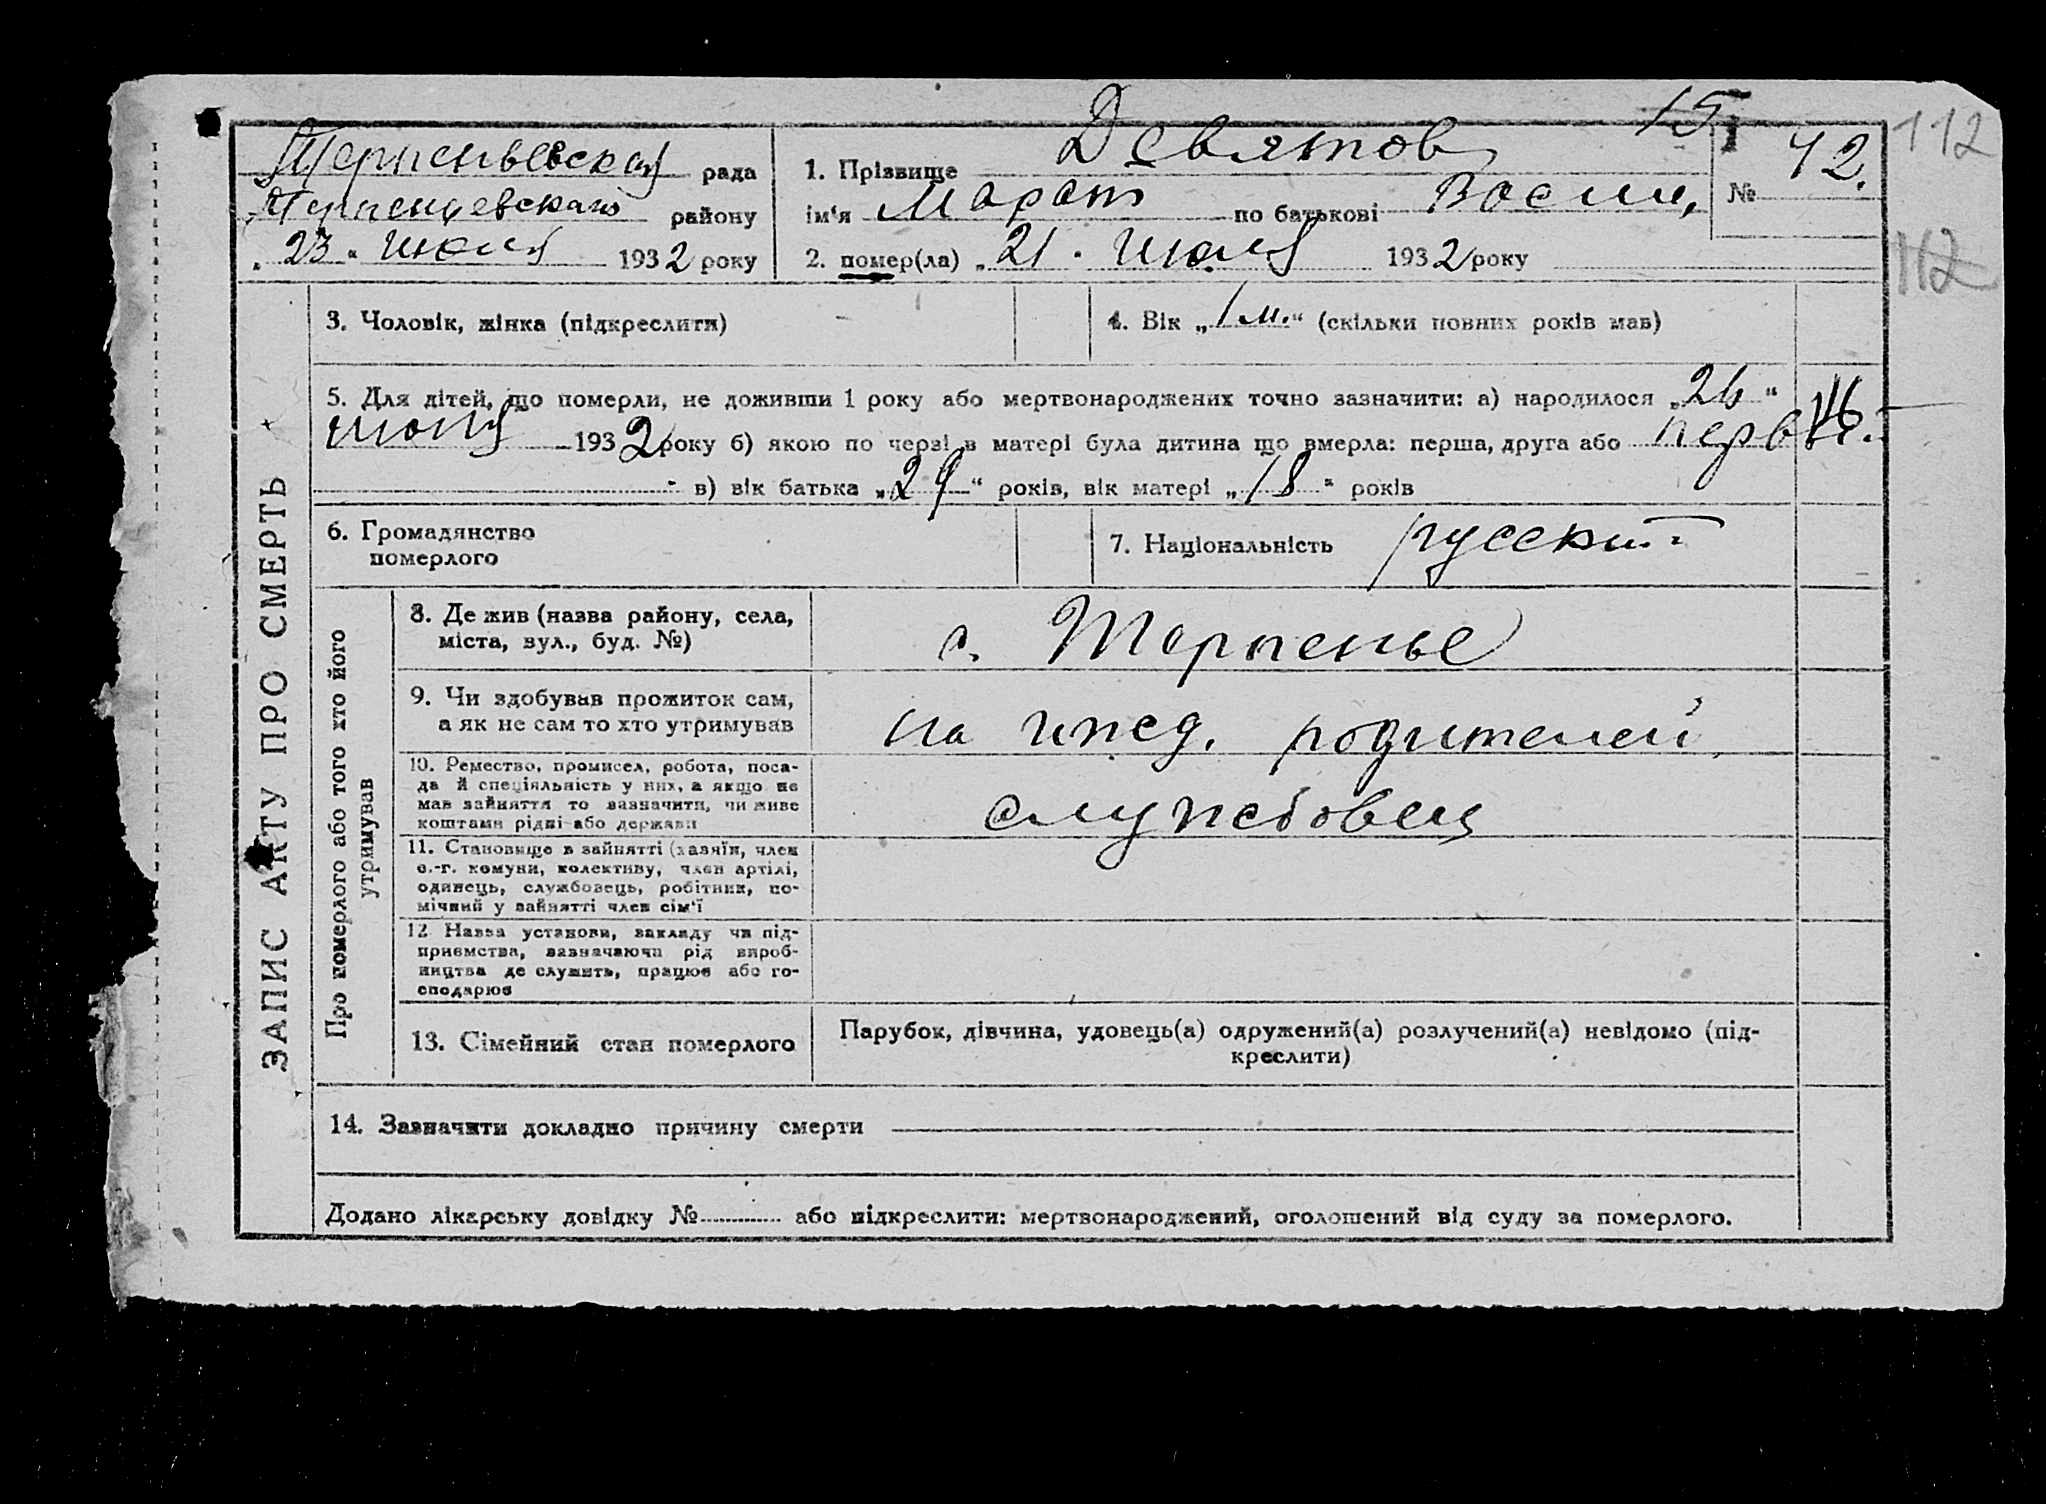 15
112
Терпеньевская рада
1. Прізвище Девятов
№ 42.
района району
ім'я Марат по батькові Васил,
„23“ июля 1932 року
2. помер(ла) „21“ июля 1932 року
112
ЗАПИС АКТУ ПРО СМЕРТЬ
3. Чоловік, жінка (підкреслити)
4. Вік „1 м.“ (скільки повних років мав)
5. Для дітей, що померли, не доживши 1 року або мертвонароджених точно зазначити: а) народилося „26“
июня 1932 року б) якою по черзі в матері була дитина що вмерла: перша, друга або
в) вік батька „29“ років, вік матері „18“ років
6. Громадянство
померлого
7. Національність русский
Про померлого або того хто його
утримував
8. Де жив (назва району, села,
міста, вул., буд. №)
с. Терпенье
9. Чи здобував прожиток сам,
а як не сам то хто утримував
на ижед. родителей
10. Ремество, промисел, робота, поса-
да й спеціяльність у них, а якщо не
мав зайняття то зазначити, чи живе
коштами рідні або держави
службовец
11. Становище в зайнятті (хазяїн, член
с.-г. комуни, колективу, член артілі,
одинець, службовець, робітник, по-
мічний у зайнятті член сім'ї
12. Назва установи, закладу чи під-
приємства, зазначаючи рід вироб-
ництва де служить, працює або го-
сподарює
13. Сімейний стан померлого
Парубок, дівчина, удовець(а) одружений(а) розлучений(а) невідомо (під-
креслити)
14. Зазначити докладно причину смерти
Додано лікарську довідку № або підкреслити: мертвонароджений, оголошений від суду за померлого.